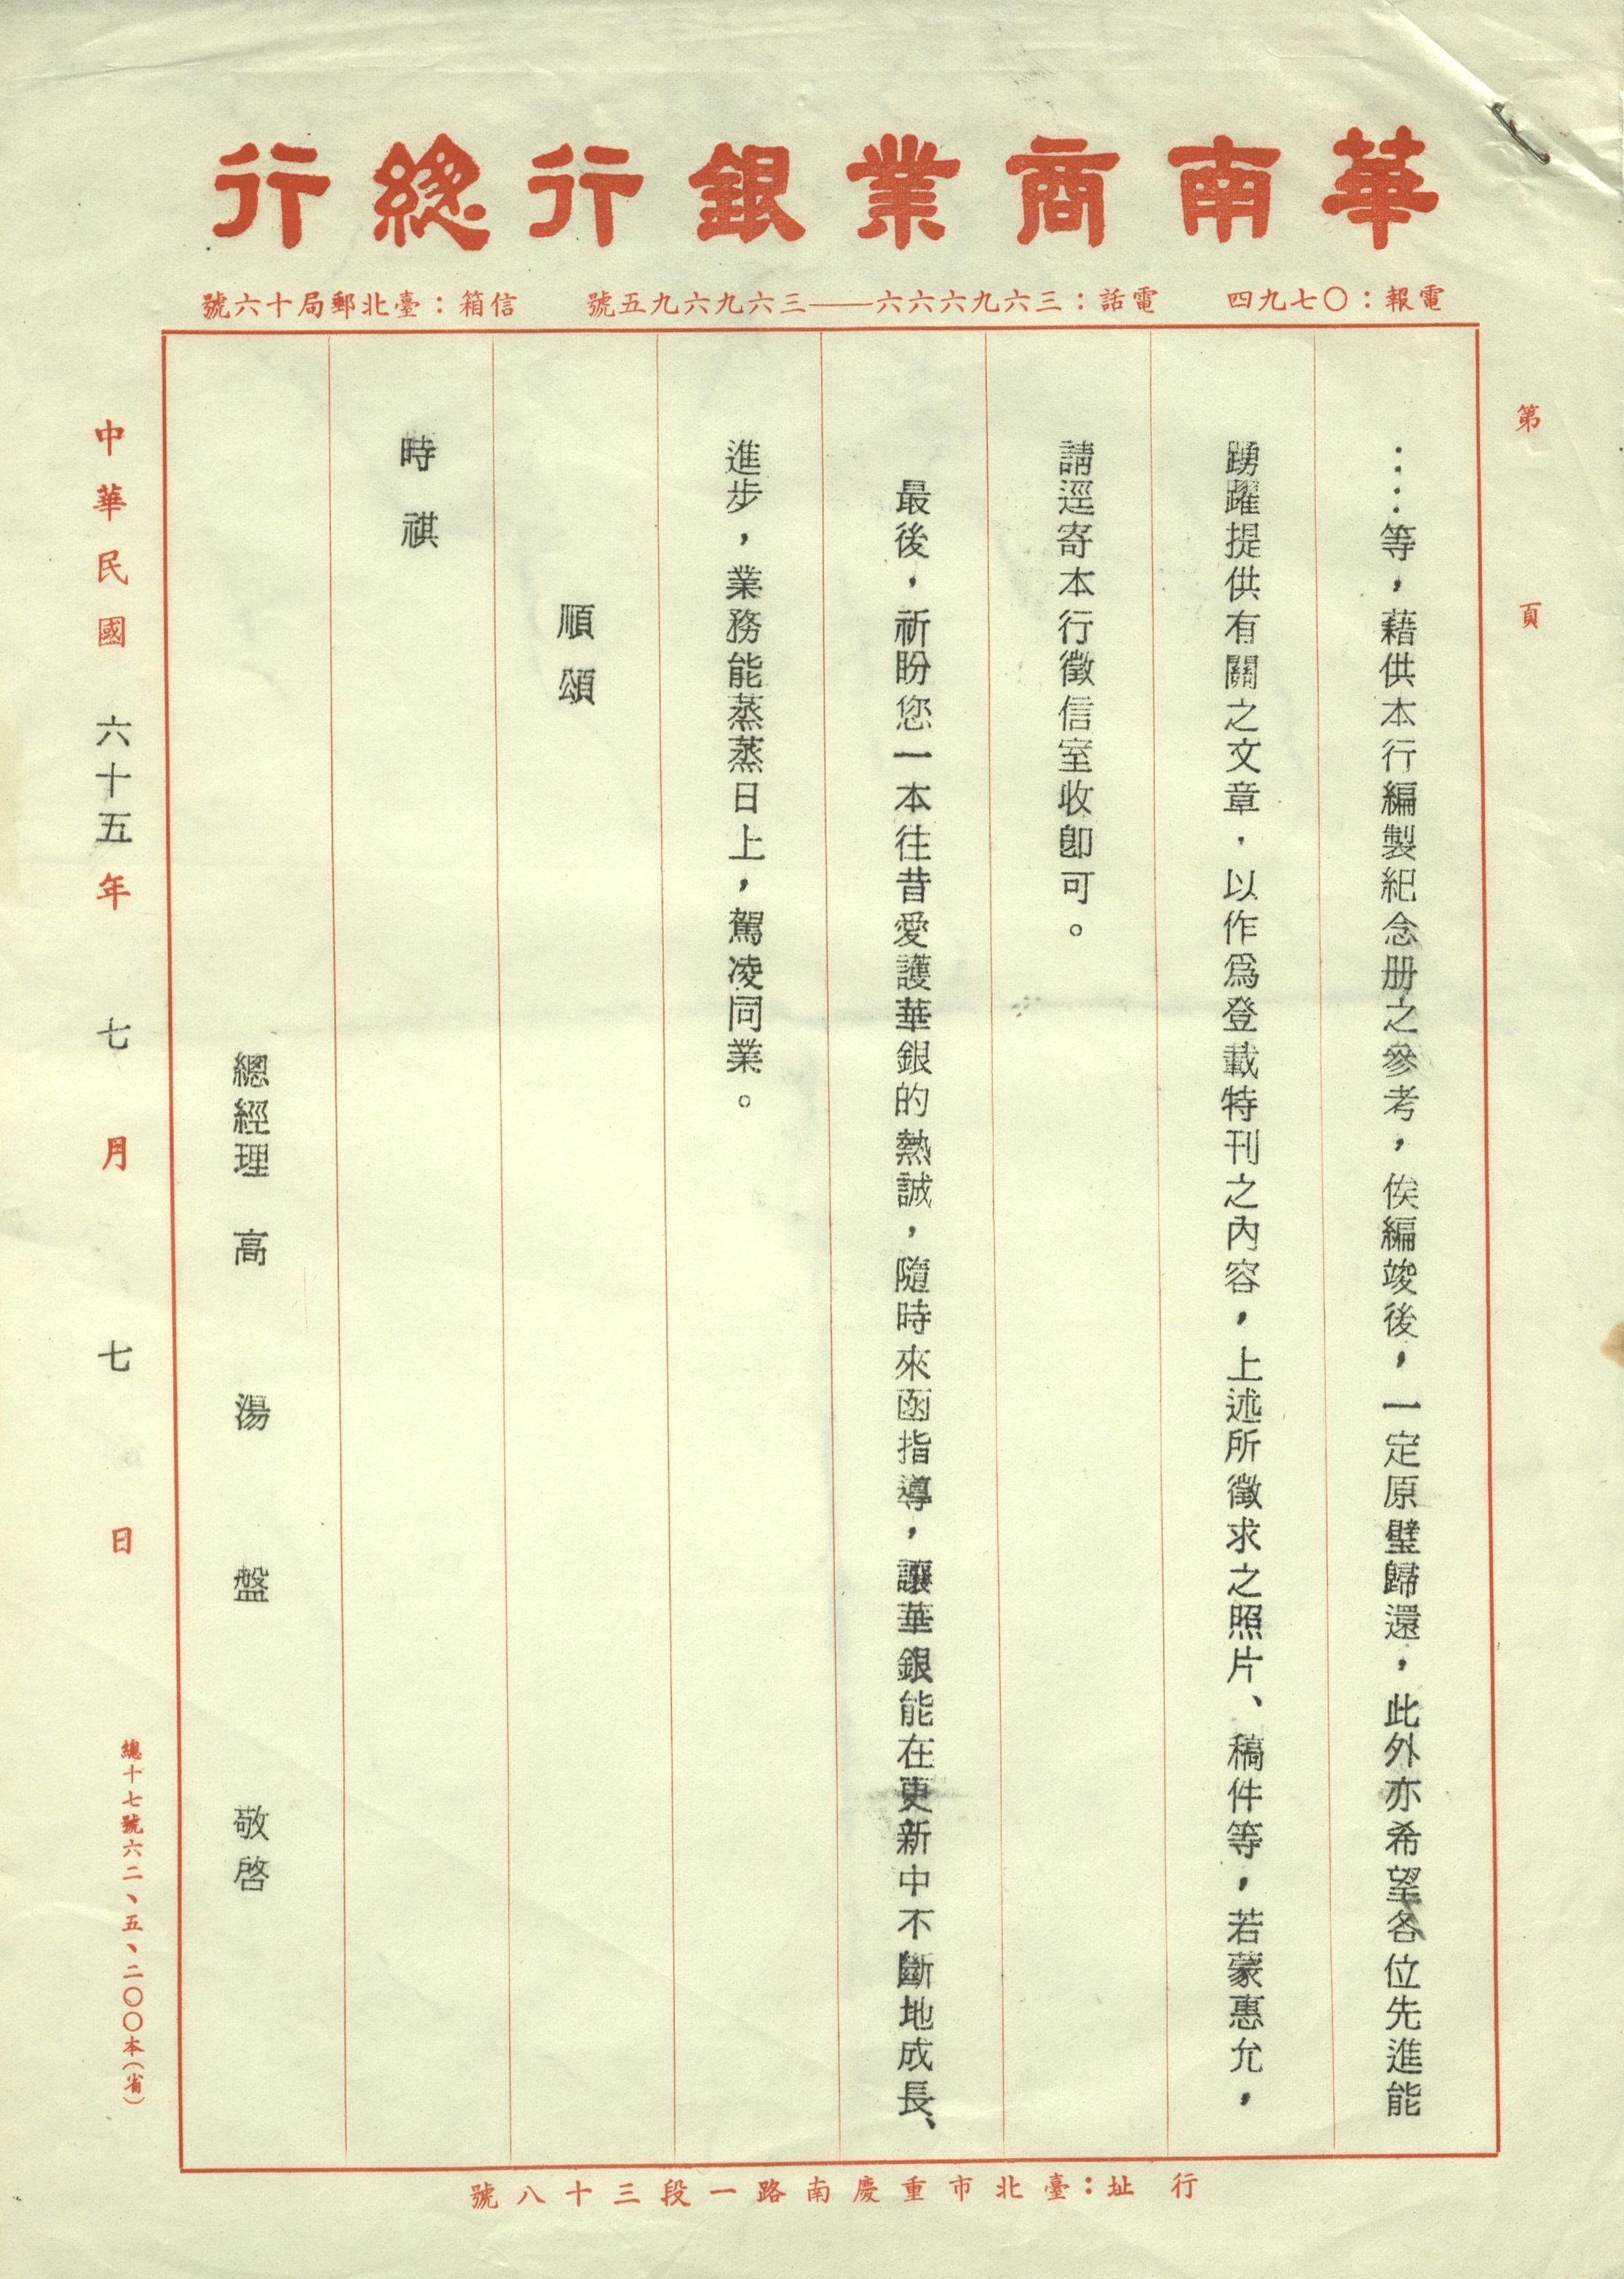 華南商業銀行總行
電報：〇七九四　電話：三六九六六六——三六九六九五號　信箱：臺北郵局十六號
第　頁
：：等，藉供本行編製紀念册之參考，俟編竣後，一定原璧歸還，此外亦希望各位先進能
踴躍提供有關之文章，以作爲登載特刊之內容，上述所徵求之照片、稿件等，若蒙惠允，
請逕寄本行徵信室收卽可。
最後，祈盼您一本往昔愛護華銀的熱誠，隨時來函指導，讓華銀能在更新中不斷地成長、
進步，業務能蒸蒸日上，駕凌同業。
順頌
時祺
總經理　高　湯　盤　敬啓
中華民國六十五年七月七日
總十七號六二、五、二〇〇本（省）
行址：臺北市重慶南路一段三十八號